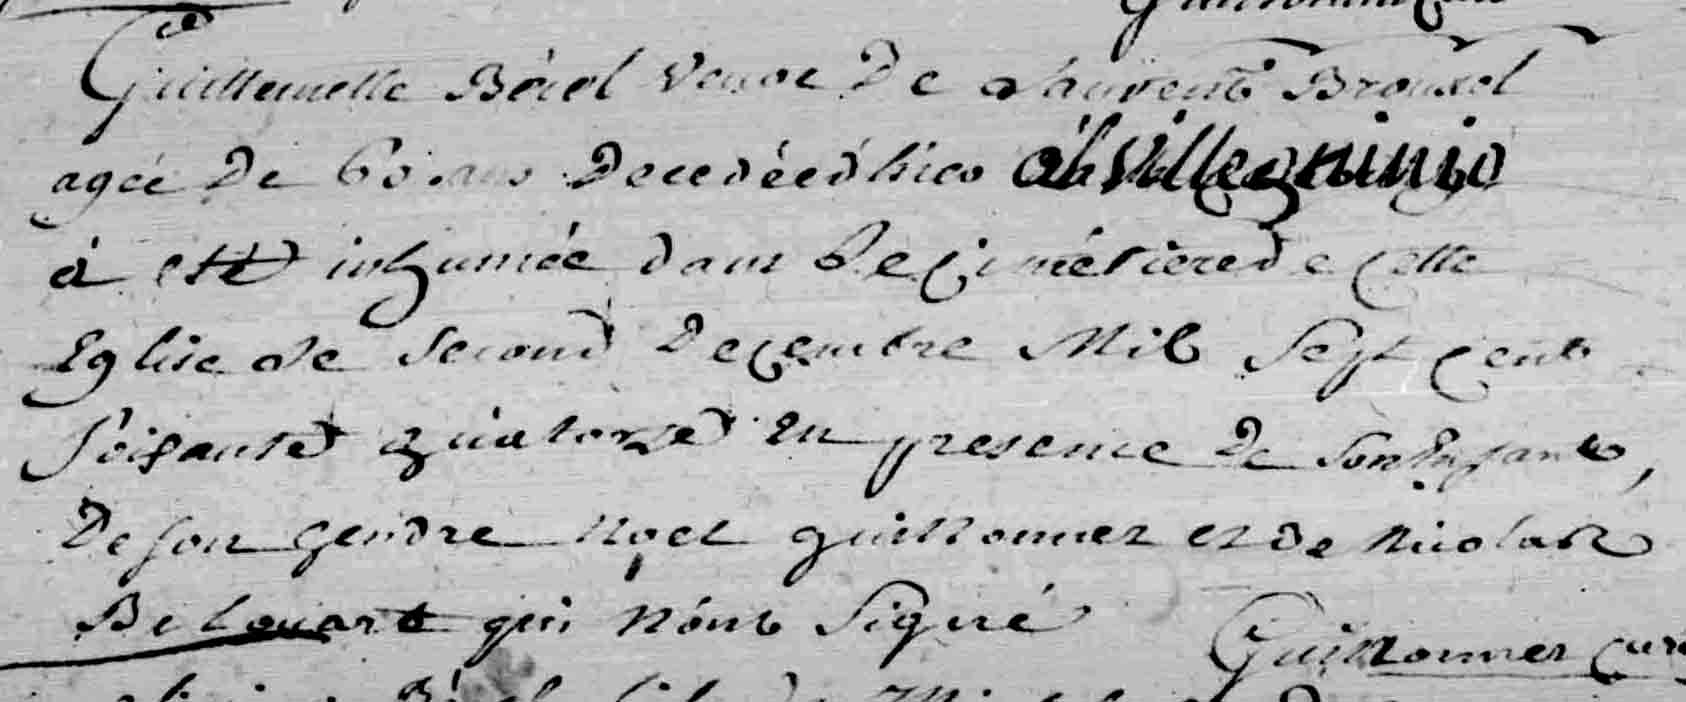 Guillemette Bérel veuve De Laurent Brouxel
agée De 60 ans Decedée d'hier à la ville
à esté inhumée dans le cimétiere de cette
Eglise le second Decembre Mil Sept cent
soisante quatorze En presence De son Enfant,
De son gendre Noel guillonner et de Nicolas
Belouart qui n'ont Signé Guillonner curé